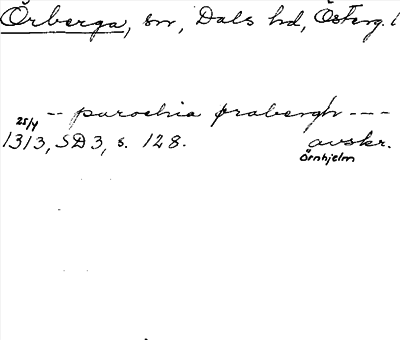 Örberga, sn, Dals hd, Österg. l
-- parochia ørabergh ---
25/4
1313, SD3, s. 128. avskr.
Örnhjelm